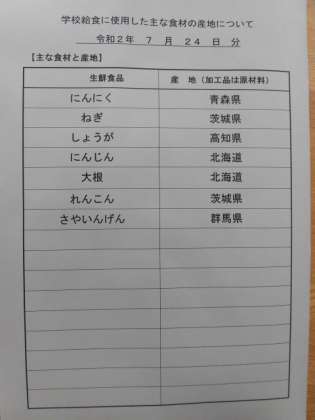 学校給食に使用した主な食材の産地について
令和２年 ７ 月 ２４ 日 分
【主な食材と産地】
生鮮食品 産 地（加工品は原材料）
にんにく 青森県
ねぎ 茨城県
しょうが 高知県
にんじん 北海道
大根 北海道
れんこん 茨城県
さやいんげん 群馬県